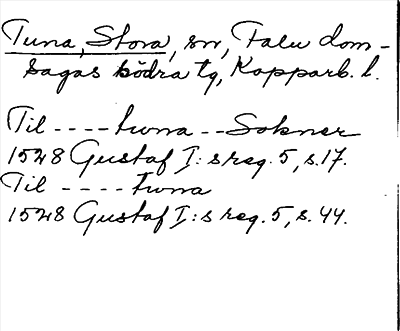 Tuna, Stora, sn, Falu dom-
sagas södra tg, Kopparb. l.
Til ---- tuna -- Sokner
1528 Gustaf I:s reg. 5, s. 17.
Til ---- tuna
1528 Gustaf I:s reg. 5, s. 44.